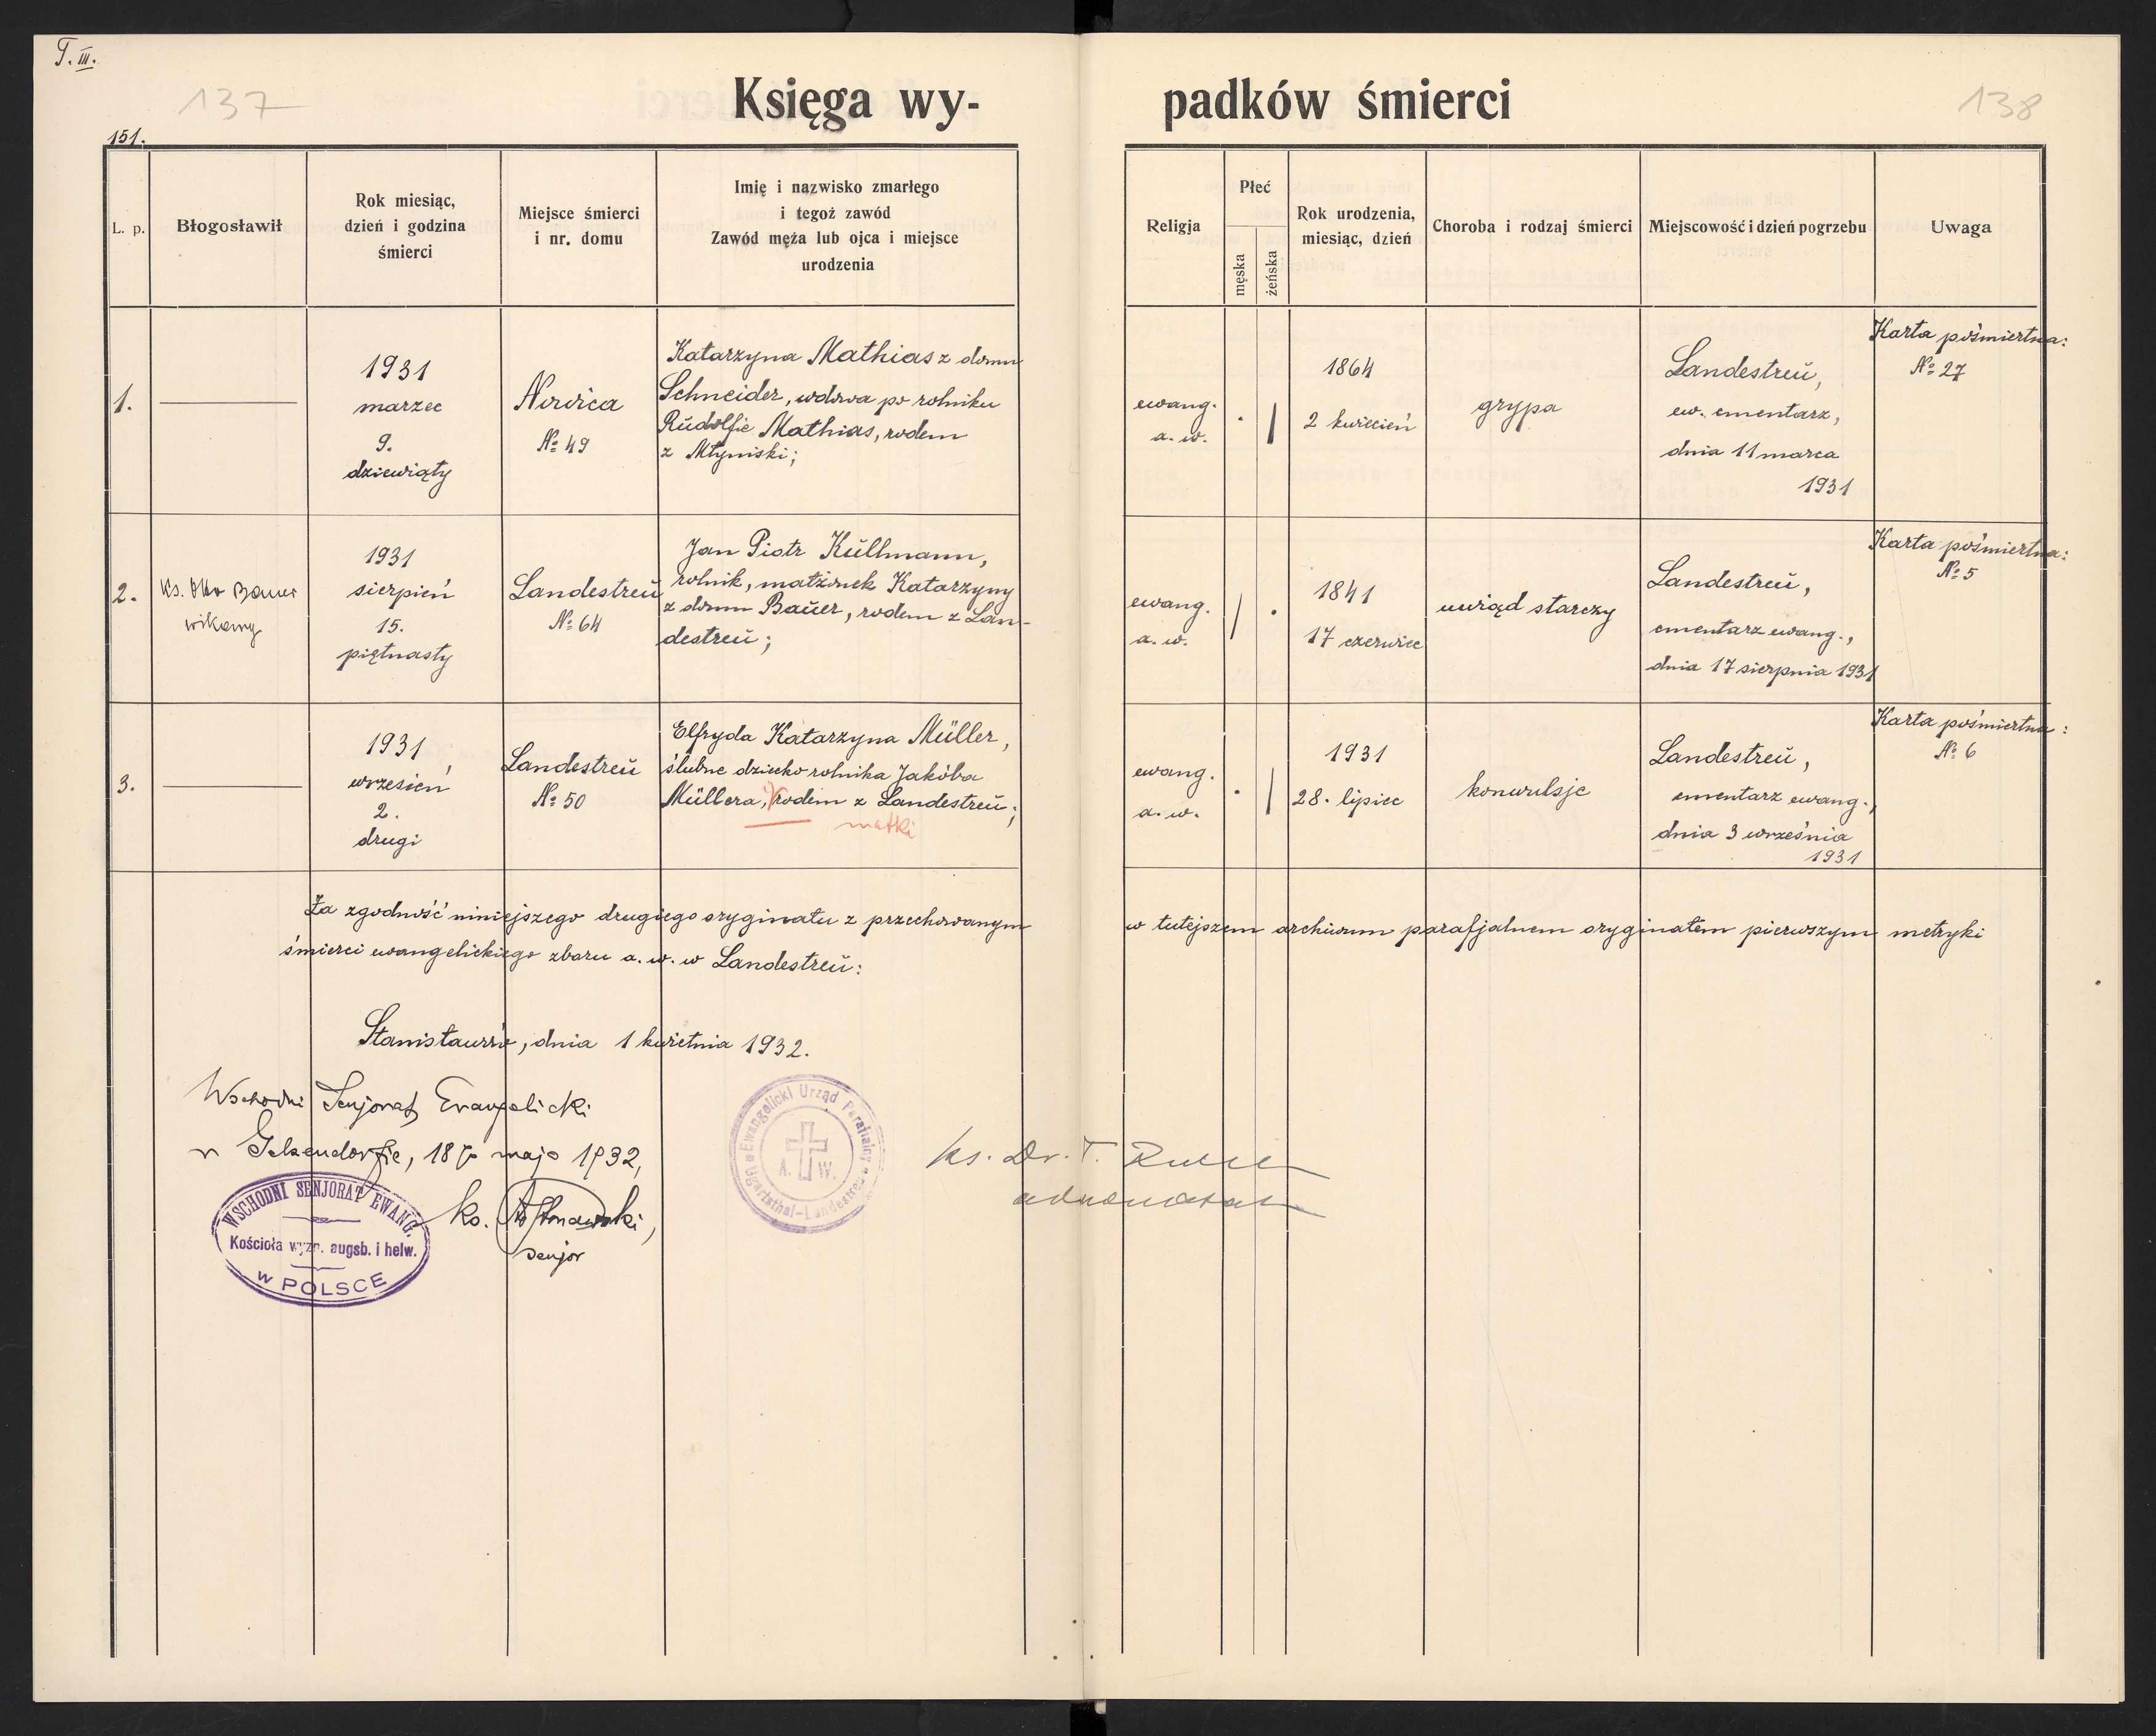 T. III.
137
138
151.
Księga wy-
padków śmierci
L. p.
Błogosławił
Rok miesiąc,
dzień i godzina
śmierci
Miejsce śmierci
i nr. domu
Imię i nazwisko zmarłego
i tegoż zawód
Zawód męża lub ojca i miejsce
urodzenia
Religja
Płeć
męska
żeńska
Rok urodzenia,
miesiąc, dzień
Choroba i rodzaj śmierci
Miejscowość i dzień pogrzebu
Uwaga
1.
1931
marzec
9.
dziewiąty
Nowica
№ 49
Katarzyna Mathias z domu
Schneider, wdowa po rolniku
Rudolfie Mathias, rodem
z Młyniski;
ewang.
a. w.
1864
2 kwiecień
grypa
Landestreu,
ew. cmentarz,
dnia 11 marca
1931
Karta pośmiertna:
№ 27
2.
Ks. Otto Bauer
wikary
1931
sierpień
15.
piętnasty
Landestreu
№ 64
Jan Piotr Kullmann,
rolnik, małżonek Katarzyny
z domu Bauer, rodem z Lan-
destreu;
ewang.
a. w.
1841
17 czerwiec
uwiąd starczy
Landestreu,
cmentarz ewang.,
dnia 17 sierpnia 1931
Karta pośmiertna:
№ 5
3.
1931
wrzesień
2.
drugi
Landestreu
№ 50
Elfryda Katarzyna Müller,
ślubne dziecko rolnika Jakóba
Müllera, rodem z Landestreu;
matki
ewang.
a. w.
1931
28. lipiec
konwulsje
Landestreu,
cmentarz ewang.,
dnia 3 września
1931
Karta pośmiertna:
№ 6
Za zgodność niniejszego drugiego oryginału z przechowanym w tutejszem archiwum parafjalnem oryginałem pierwszym metryki
śmierci ewangelickiego zboru a. w. w Landestreu:
Stanisławów, dnia 1 kwietnia 1932.
Wschodni Senjorat Ewangelicki
w Gelsendorfie, 18 go maja 1932,
ks.
senjor
WSCHODNI SENJORAT EWANG.
Kościoła wyzn. augsb. i helw.
w POLSCE
Ewangelicki Urząd Parafialny
Ugartsthal-Landestreu
A. W.
ks. Dr. T.